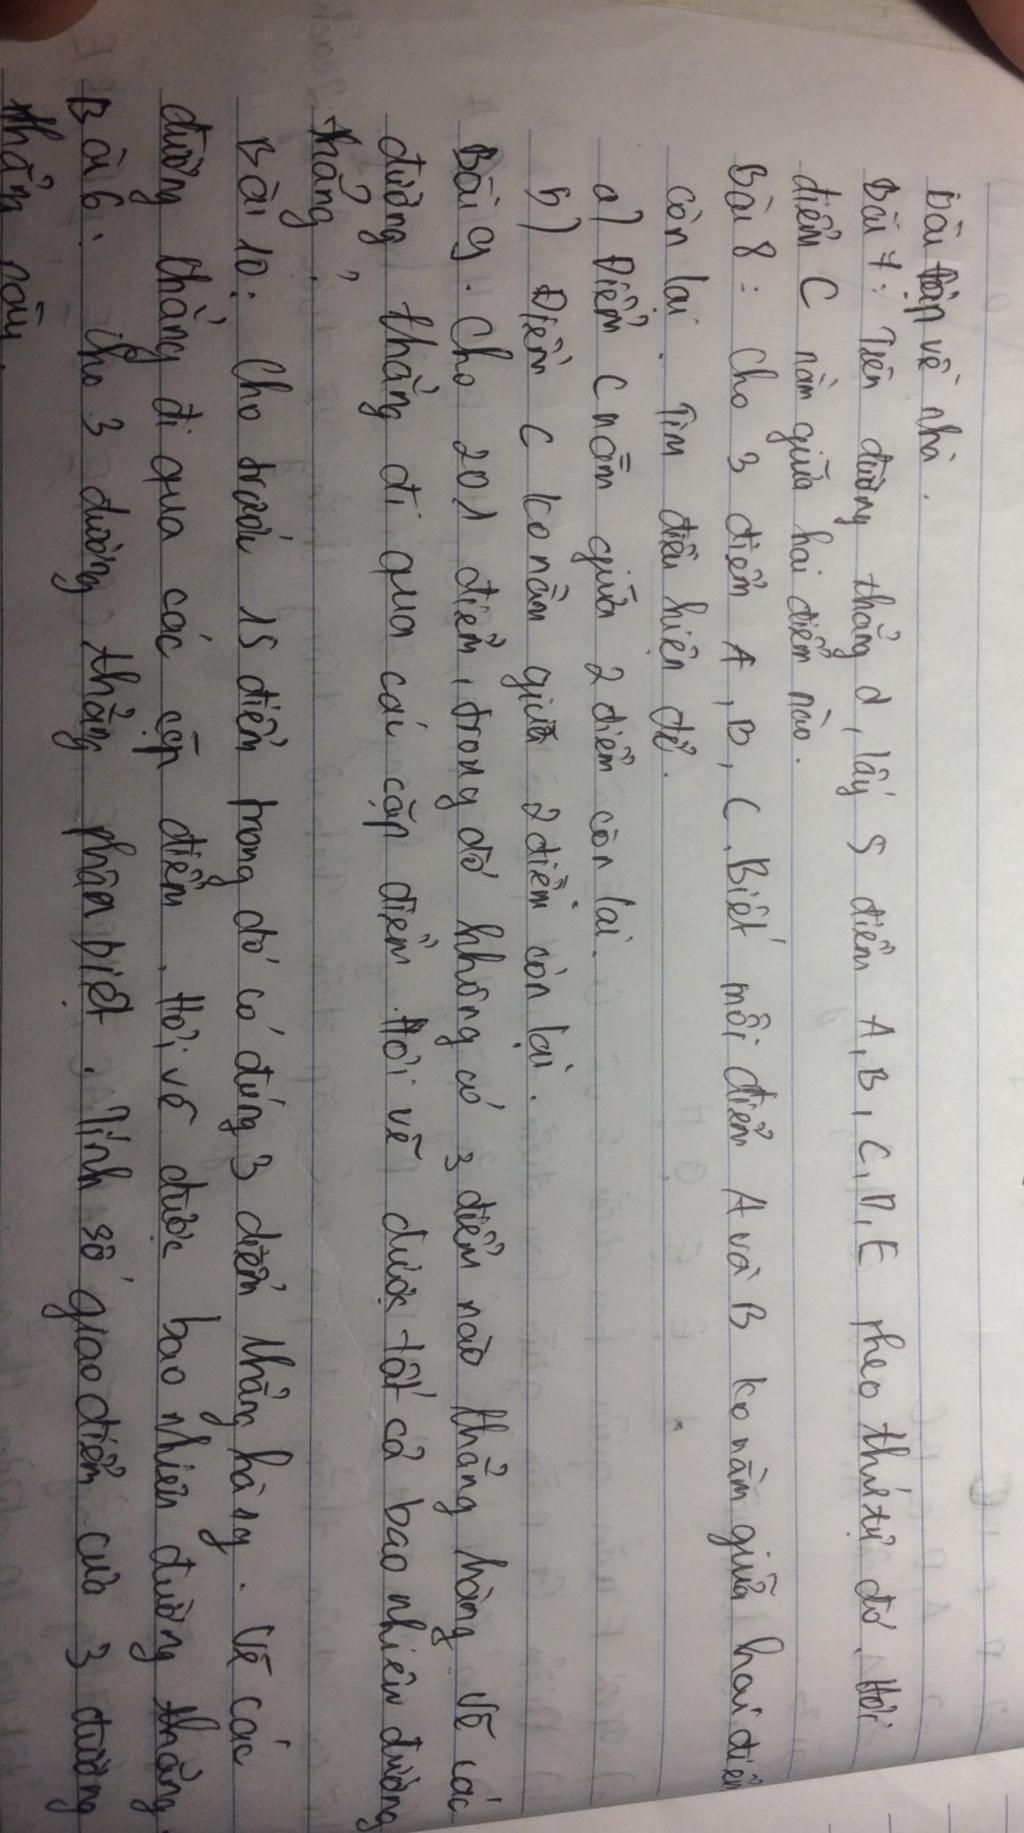 Bài tập về nhà.
Bài 7: Trên đường thẳng d, lấy 5 điểm A, B, C, D, E theo thứ tự đó. Hỏi
điểm C nằm giữa hai điểm nào.
Bài 8: Cho 3 điểm A, B, C. Biết mỗi điểm A và B ko nằm giữa hai điểm
còn lại. Tìm điều kiện để.
a) Điểm C nằm giữa 2 điểm còn lại.
b) Điểm C ko nằm giữa 2 điểm còn lại.
Bài 9. Cho 201 điểm, trong đó không có 3 điểm nào thẳng hàng. Vẽ các
đường thẳng đi qua các cặp điểm. Hỏi vẽ được tất cả bao nhiên đường
thẳng,
Bài 10: Cho trước 15 điểm trong đó có đúng 3 điểm thẳng hàng. Vẽ các
đường thẳng đi qua các cặp điểm. Hỏi vẽ được bao nhiên đường thẳng
Bài 6. Cho 3 đường thẳng phân biệt. Tính số giao điểm của 3 đường
thẳng này.